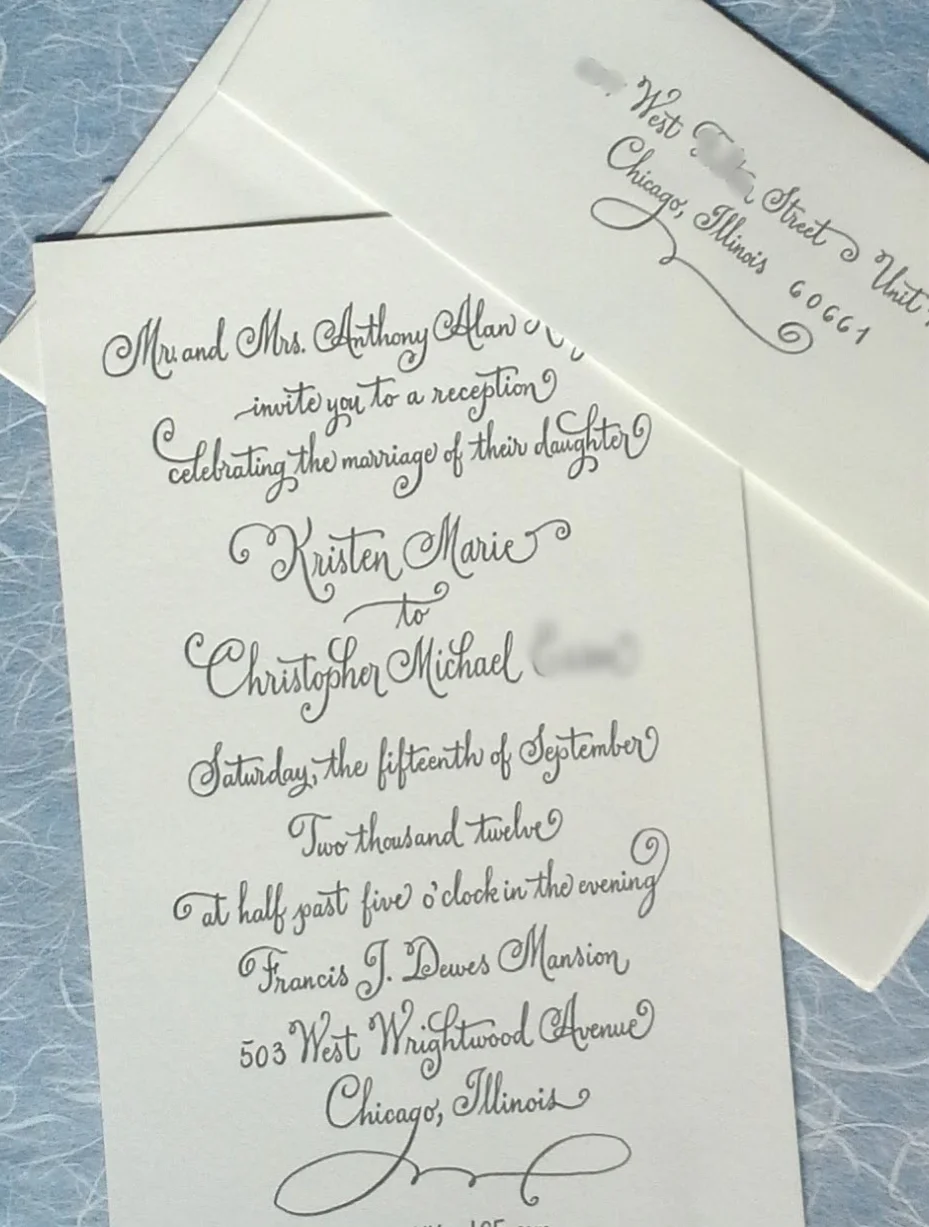 West Street Unit
Chicago, Illinois 60661
Mr. and Mrs. Anthony Alan
invite you to a reception
celebrating the marriage of their daughter
Kristen Marie
to
Christopher Michael
Saturday, the fifteenth of September
Two thousand twelve
at half past five o'clock in the evening
Francis J. Dewes Mansion
503 West Wrightwood Avenue
Chicago, Illinois